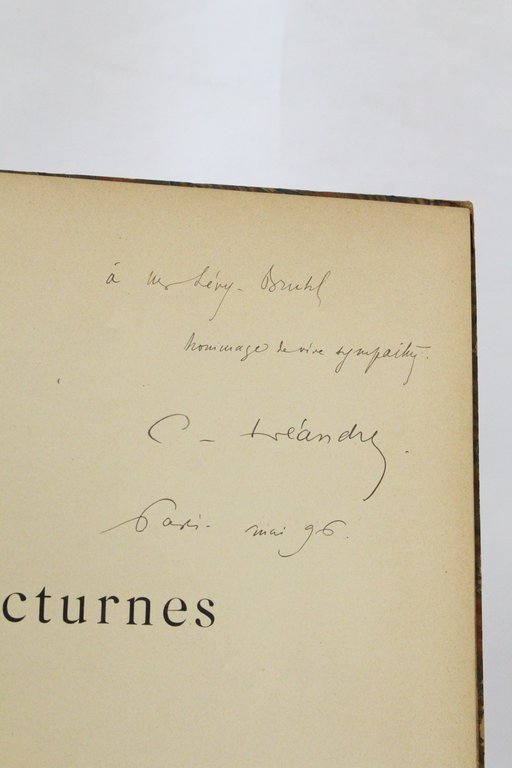 à Mr Lévy-Bruhl
hommage de vive sympathie.
C - Léandre.
Paris. mai 96.
cturnes